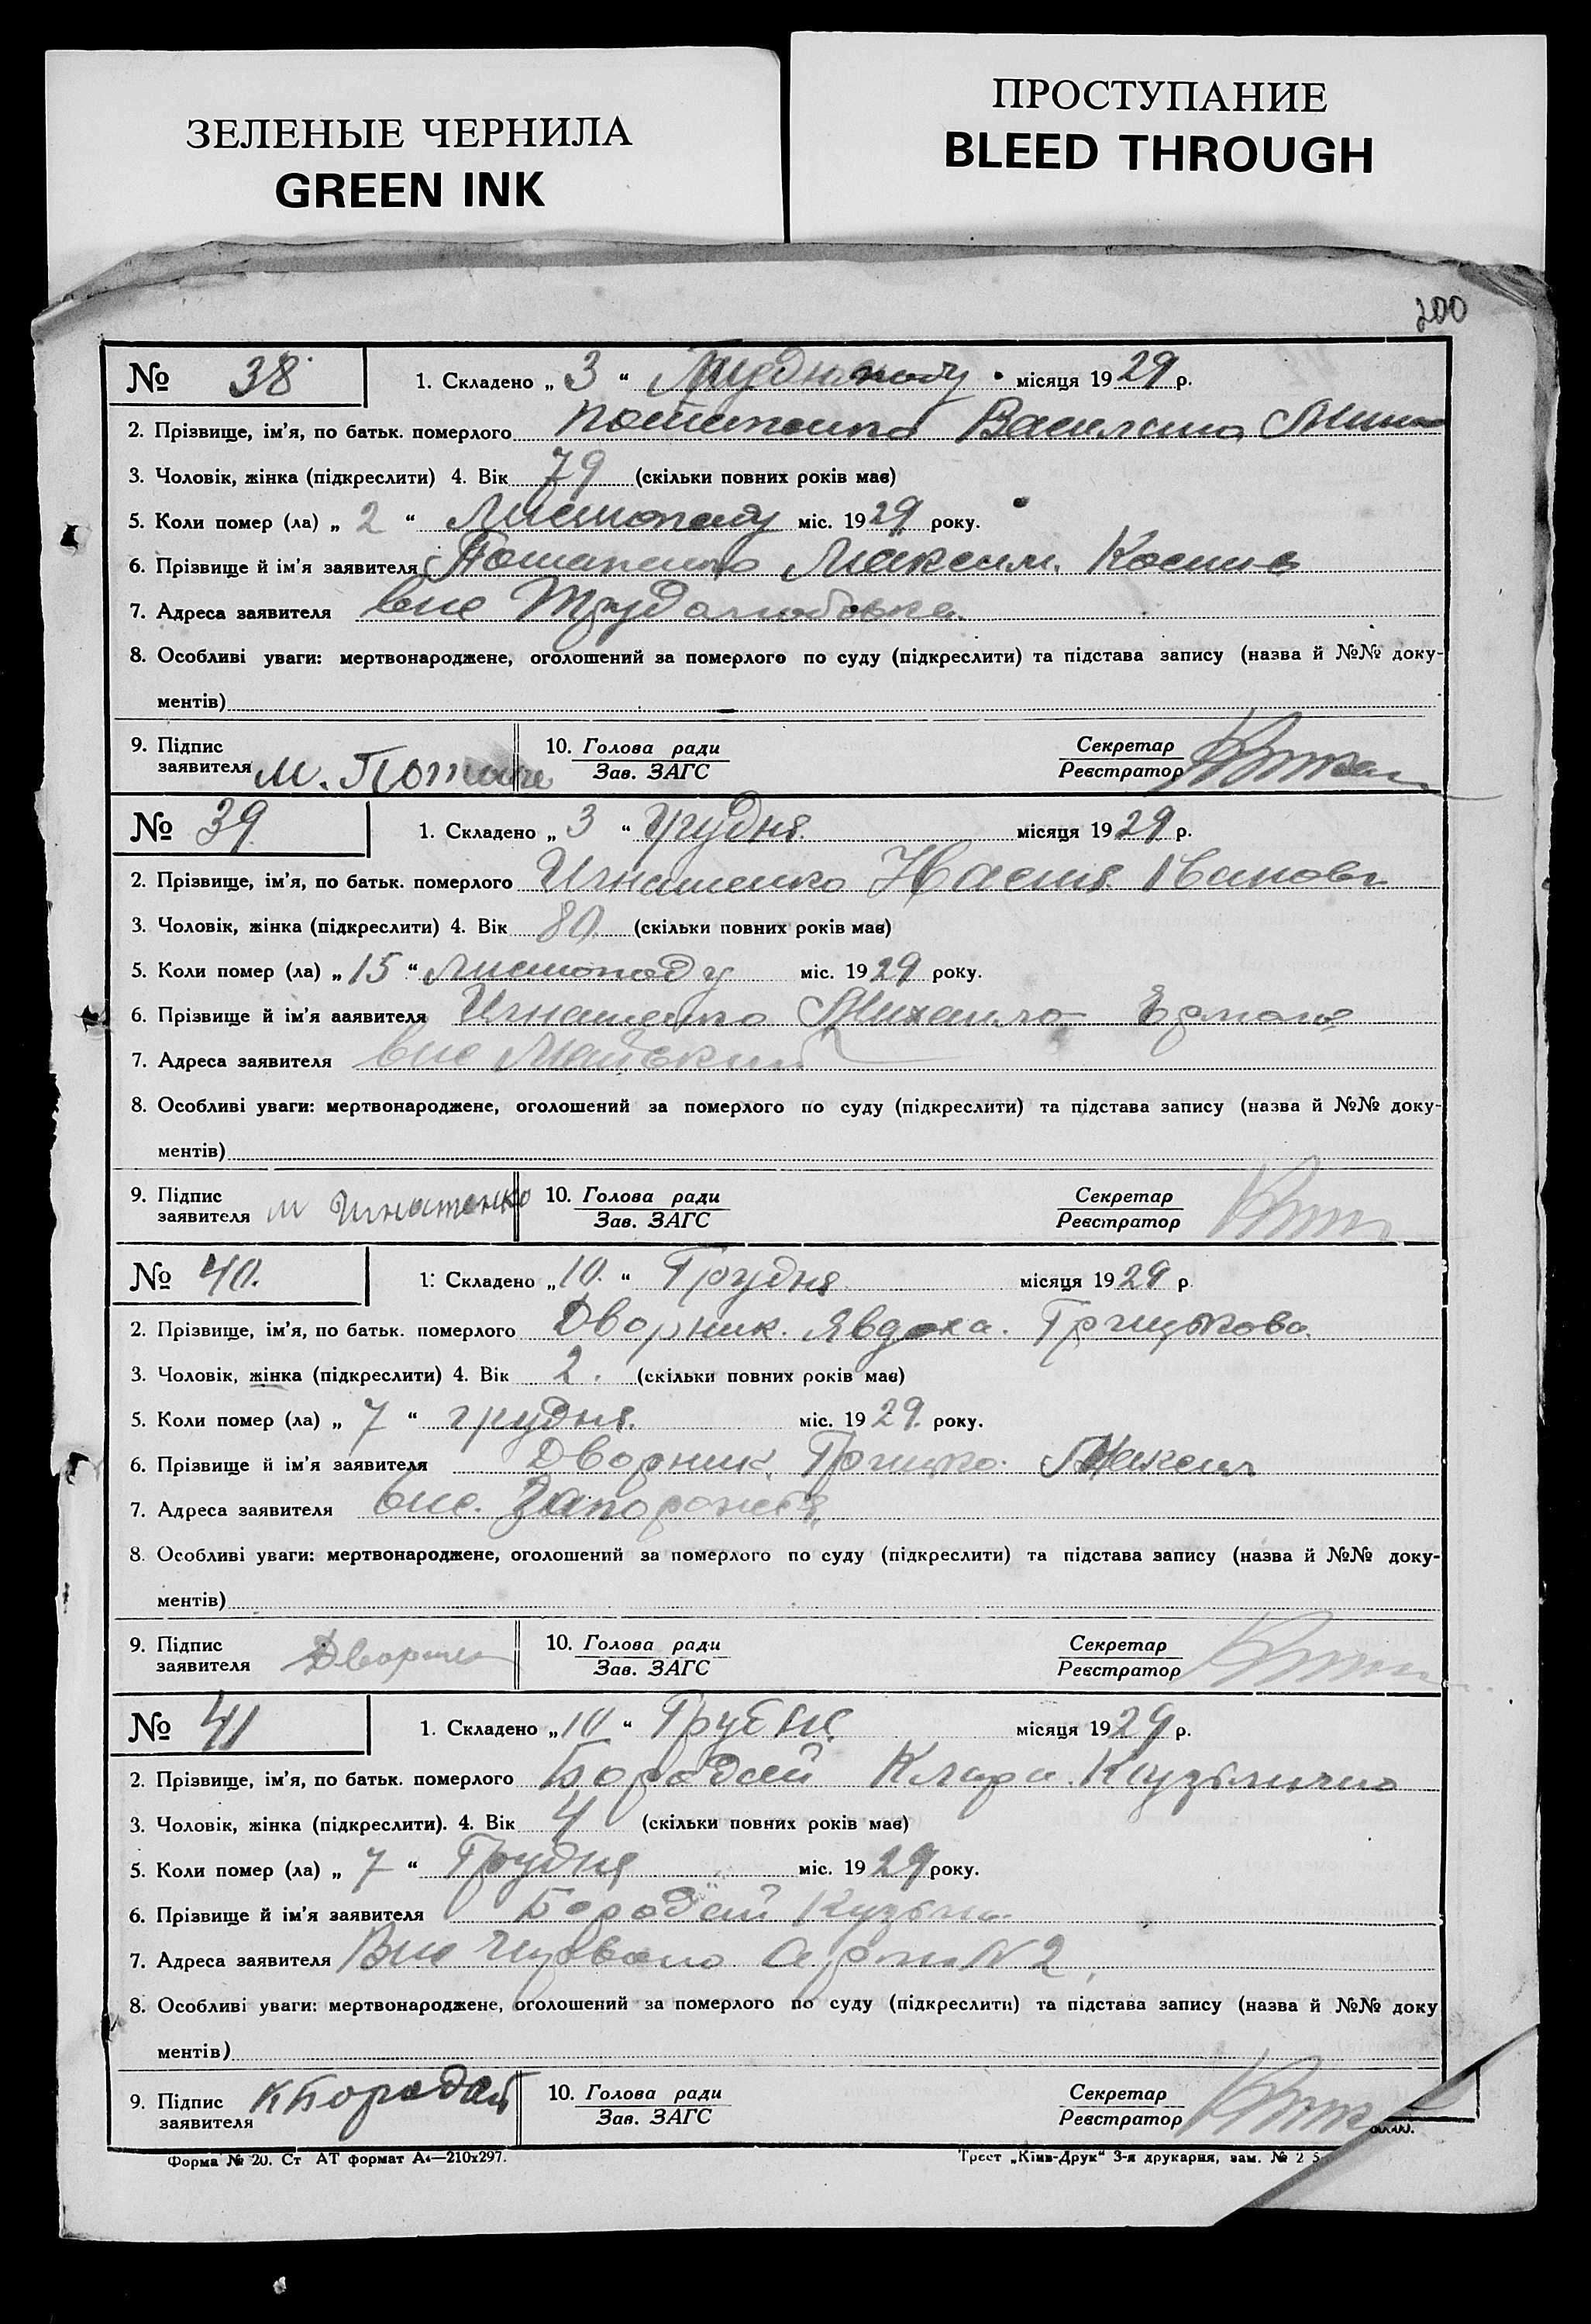 ЗЕЛЕНЫЕ ЧЕРНИЛА
GREEN INK
ПРОСТУПАНИЕ
BLEED THROUGH
200
№ 38 1. Складено „ 3 “ місяця 1929 р.
2. Прізвище, ім’я, по батьк. померлого
3. Чоловік, жінка (підкреслити) 4. Вік 79 (скільки повних років має)
5. Коли помер (ла) „ 2 “ Листопаду міс. 1929 року.
6. Прізвище й ім’я заявителя Потапенко Максим
7. Адреса заявителя вис Трудолюбовка
8. Особливі уваги: мертвонароджене, оголошений за померлого по суду (підкреслити) та підстава запису (назва й №№ доку-
ментів)
9. Підпис заявителя М. 10. Голова ради Зав. ЗАГС Секретар Реєстратор
№ 39 1. Складено „ 3 “ Грудня місяця 1929 р.
2. Прізвище, ім’я, по батьк. померлого Игнатенко Настя Іванова
3. Чоловік, жінка (підкреслити) 4. Вік 80 (скільки повних років має)
5. Коли помер (ла) „ 15 “ Листопаду міс. 1929 року.
6. Прізвище й ім’я ааявителя Игнатенко Михаило
7. Адреса заявителя вис Майський
8. Особливі уваги: мертвонароджене, оголошений за померлого по суду (підкреслити) та підстава запису (назва й №№ доку-
ментів)
9. Підпис заявителя М Игнатенко 10. Голова ради Зав. ЗАГС Секретар Реєстратор
№ 40. 1. Складено „ 10. “ Грудня місяця 1929 р.
2. Прізвище, ім’я, по батьк. померлого Дворник. Явдоха. Грицькова.
3. Чоловік, жінка (підкреслити) 4. Вік 2. (скільки повних років має)
5. Коли помер (ла) „ 7 “ грудня. міс. 1929. року.
6. Прізвище й ім’я заявителя Дворник. Грицко. Максим
7. Адреса заявителя вис. Запорожья
8. Особливі уваги: мертвонароджене, оголошений за померлого по суду (підкреслити) та підстава запису (назва й №№ доку-
ментів)
9. Підпис заявителя Дворник 10. Голова ради Зав. ЗАГС Секретар Реєстратор
№ 41 1. Складено „ 10 “ Грудня місяця 1929 р.
2. Прізвище, ім’я, по батьк. померлого Бородай Клара
3. Чоловік, жінка (підкреслити). 4. Вік 4 (скільки повних років має)
5. Коли помер (ла) „ 7 “ Грудня міс. 1929 року.
6. Прізвище й ім’я заявителя Бородай Кузьма
7. Адреса заявителя Вис N 2
8. Особливі уваги: мертвонароджене, оголошений за померлого по суду (підкреслити) та підстава запису (назва й №№ доку
ментів)
9. Підпис заявителя К Бородай 10. Голова ради Зав. ЗАГС Секретар Реєстратор
Форма № 20. Ст АТ формат А4—210х297. Трест „Київ-Друк“ 3-я друкарня, зам. № 2 5